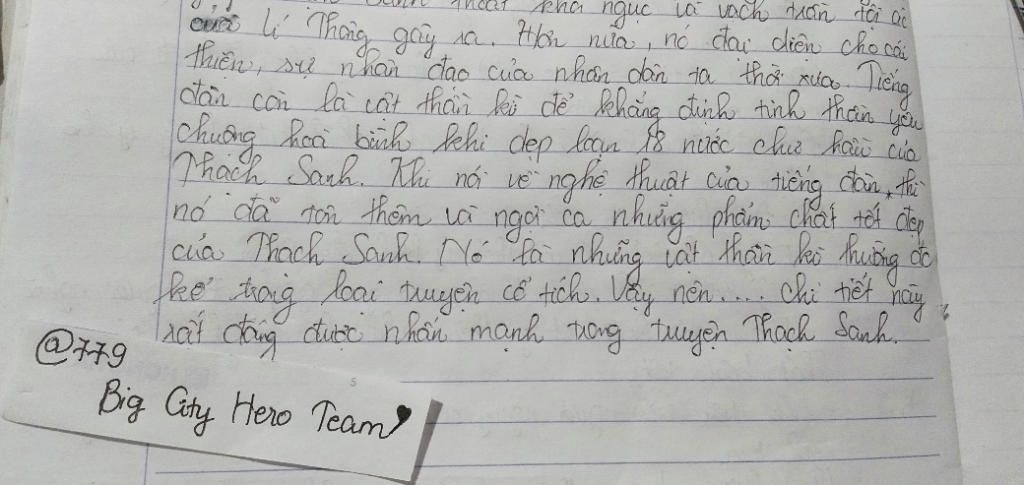 Sanh thoát khỏi ngục và vạch trần tội ác
Lí Thông gây ra. Hơn nữa, nó đại diện cho cái
thiện, sự nhân đạo của nhân dân ta thời xưa. Tiếng
đàn còn là vật thần kì để khẳng định tinh thần yêu
chuông hoà bình khi dẹp loạn 18 nước chư hầu của
Thạch Sanh. Khi nói về nghệ thuật của tiếng đàn, thì
nó đã tôn thêm và ngợi ca những phẩm chất tốt đẹp
của Thạch Sanh. Nó là những vật thần kì thường đc
kể trong loại truyện cổ tích. Vậy nên.... chi tiết này
rất đáng được nhấn mạnh trong truyện Thạch Sanh.
@779
Big City Hero Team